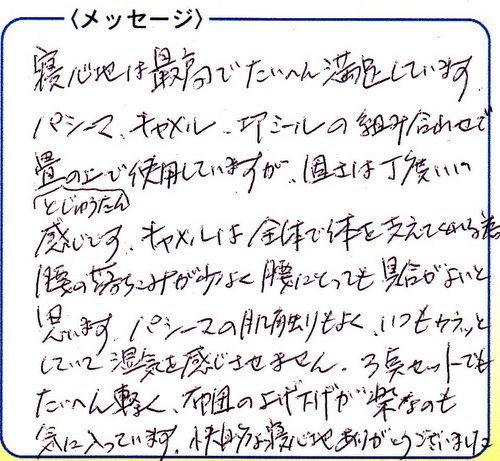 〈メッセージ〉
寝心地は最高でたいへん満足しています。
パシーマ、キャメル、エアミールの組み合わせで
畳の上で使用していますが、固さは丁度いい
とじゅうたん
感じです。キャメルは全体で体を支えてくれる為
腰の落ちこみが少なく腰にとっても具合がよいと
思います。パシーマの肌触りもよく、いつもカラッと
していて湿気を感じさせません。3点セットでも
たいへん軽く、布団の上げ下げが楽なのも
気に入っています。快適な寝心地ありがとうございました